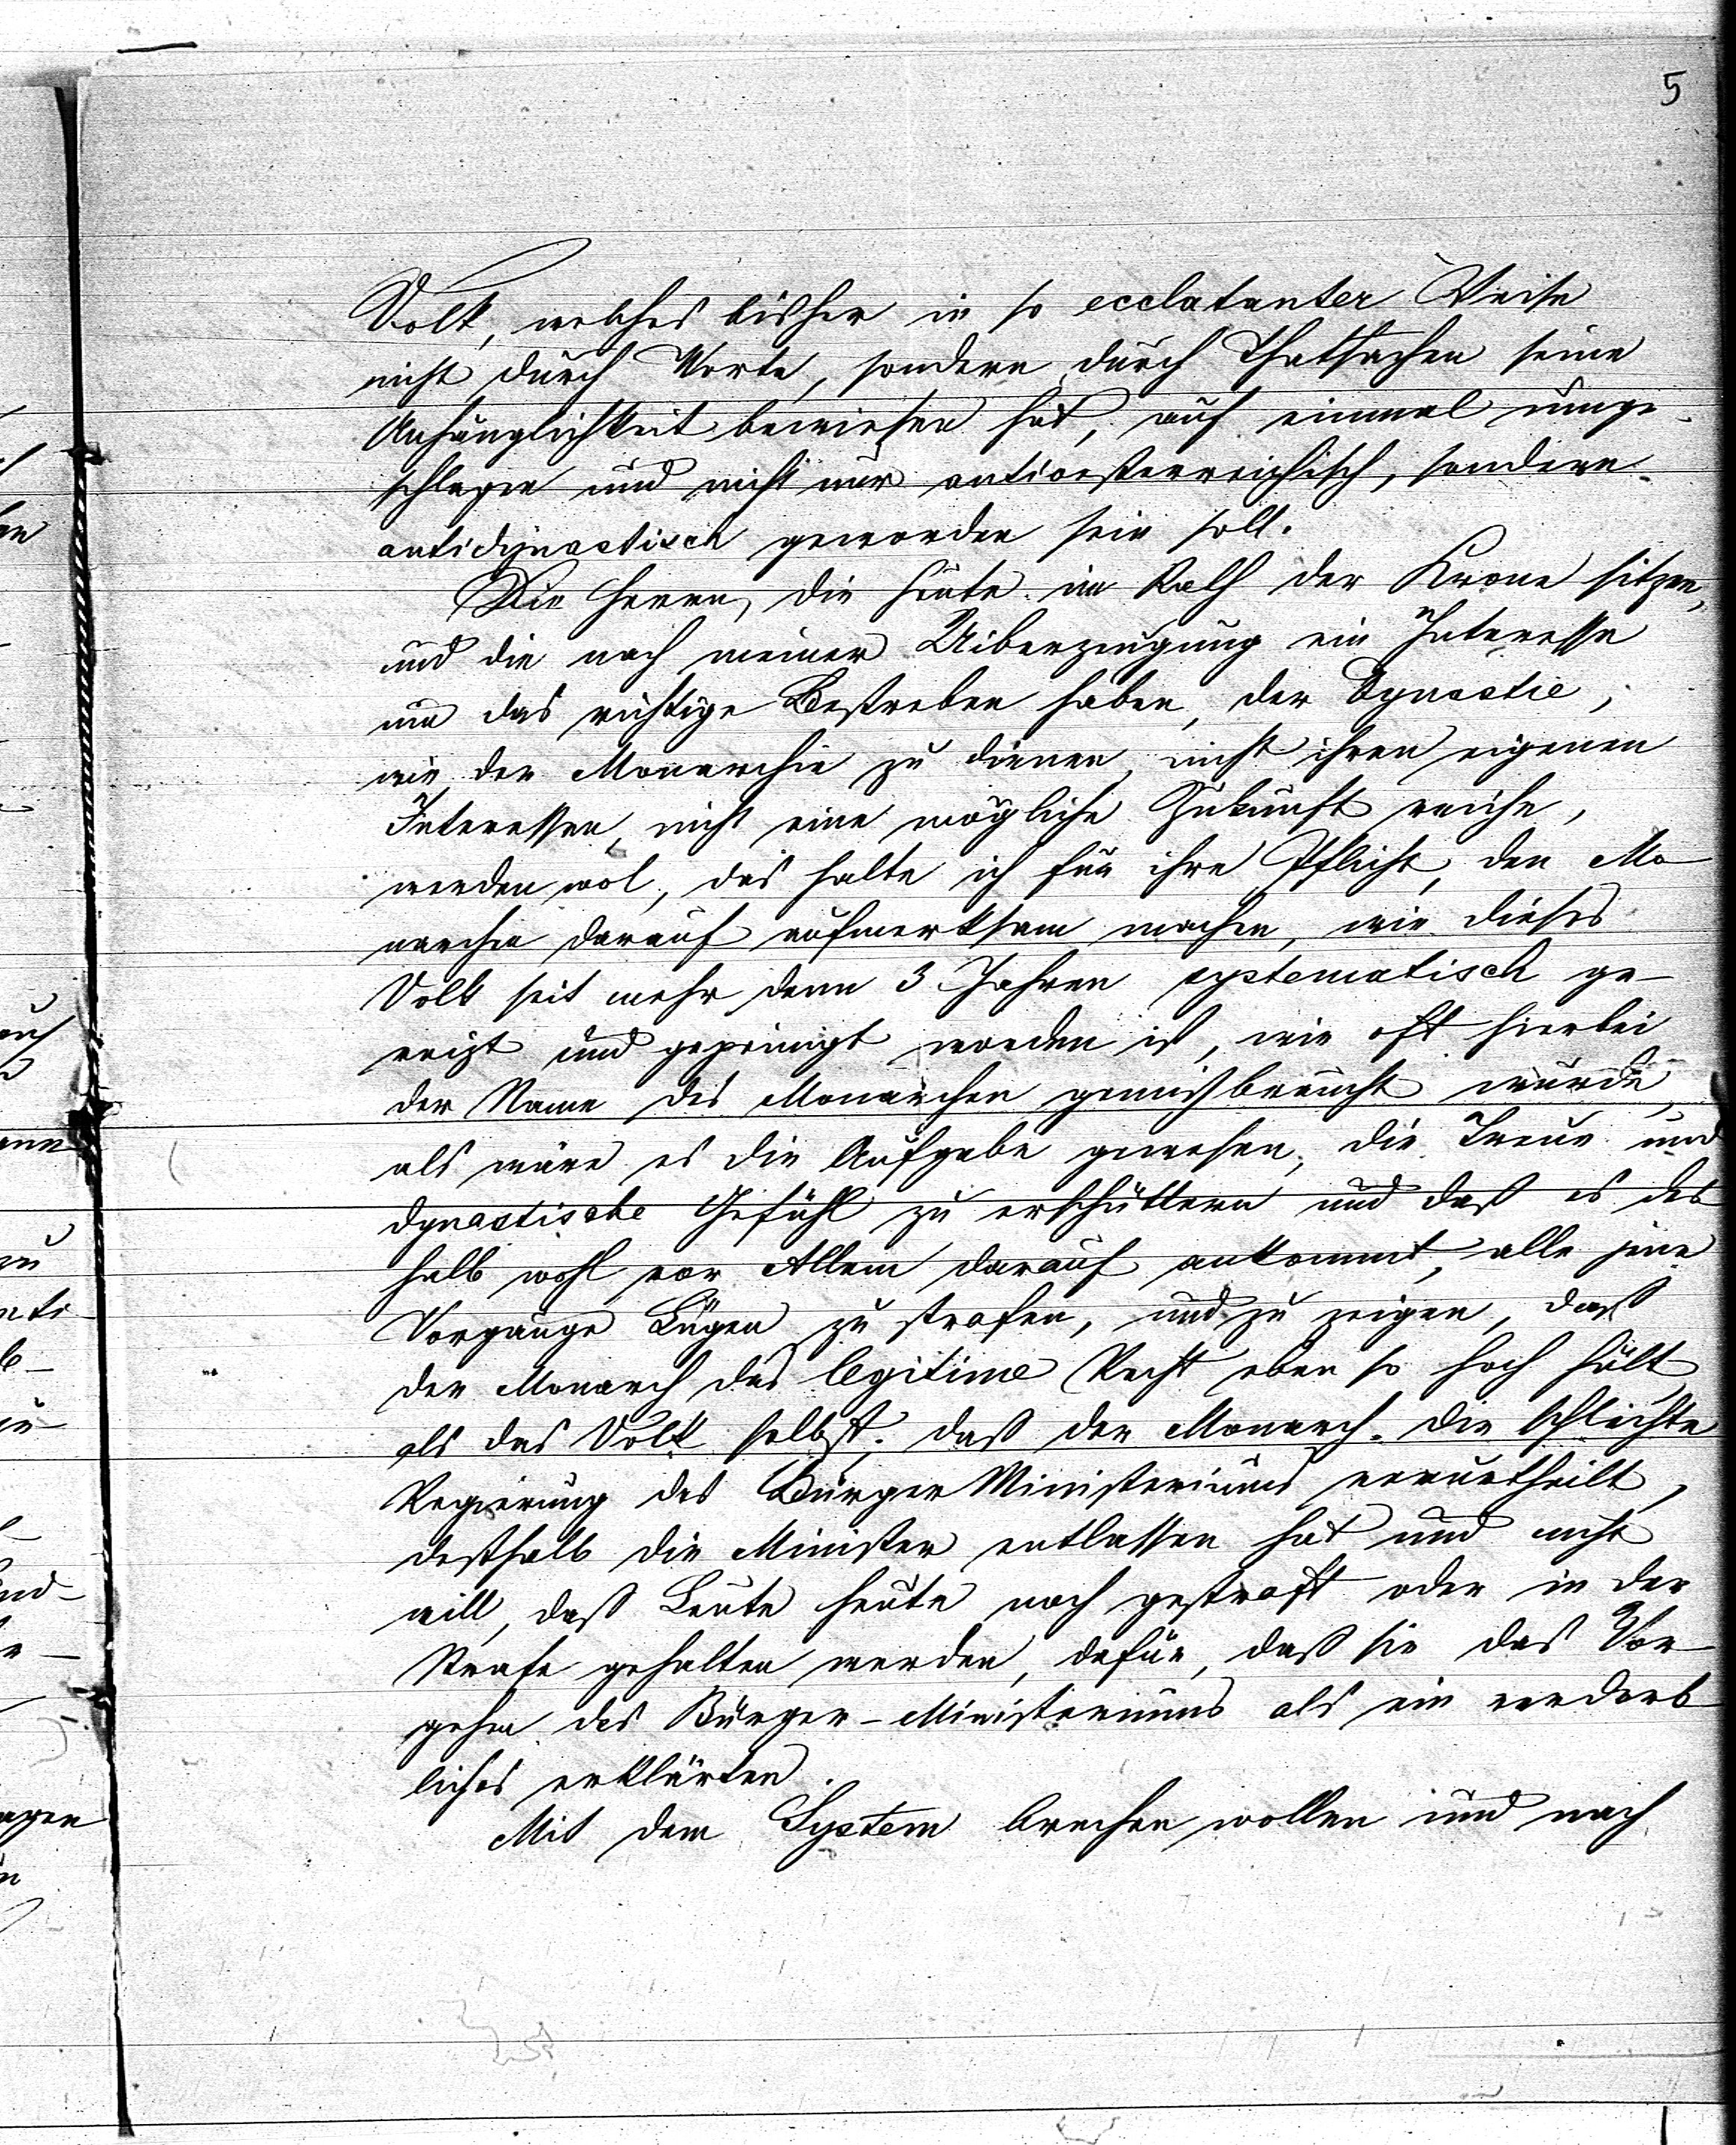 5
Volk, welches bisher in so ecclatanter Weise
nicht durch Worte, sondern durch Thatsachen seine
Anhänglichkeit bewiesen hat, auf einmal umge-
schlagen und nicht nur antioesterreichisch, sondern
antidynastisch geworden sein soll.
Die Herren, die heute im Rath der Krone sitzen,
und die nach meiner Uiberzeugung ein Interesse
nur das richtige Bestreben haben, der Dynastie,
wie der Monarchie zu dienen, nicht ihren eigenen
Interessen, nicht eine mögliche Zukunft
werden wol, das halte ich für ihre Pflicht, den Mo
narchen darauf aufmerksam machen, wie dieses
Volk seit mehr denn 3 Jahren systematisch ge-
reizt und gepeinigt worden ist, wie oft hierbei
der Name des Monarchen gemißbraucht wurde,
als wäre es die Aufgabe gewesen, die Treue und
dynastische Gefühl zu erschüttern und daß es des
halb wohl vor Allem darauf ankommt, alle jene
Vorgänge Lügen zu strafen, und zu zeigen, daß
der Monarch das legitime Recht eben so hoch hält
als das Volk selbst, daß der Monarch die schlechte
Regierung des Bürger Ministeriums verurtheilt,
deßhalb die Minister entlassen hat und nicht
will, daß Leute heute noch gestraft oder in der
Strafe gehalten werden, dafür, daß sie das Vor-
gehen des Bürger-Ministeriums als ein verderb
liches erklärten.
Mit dem System brechen wollen und nach